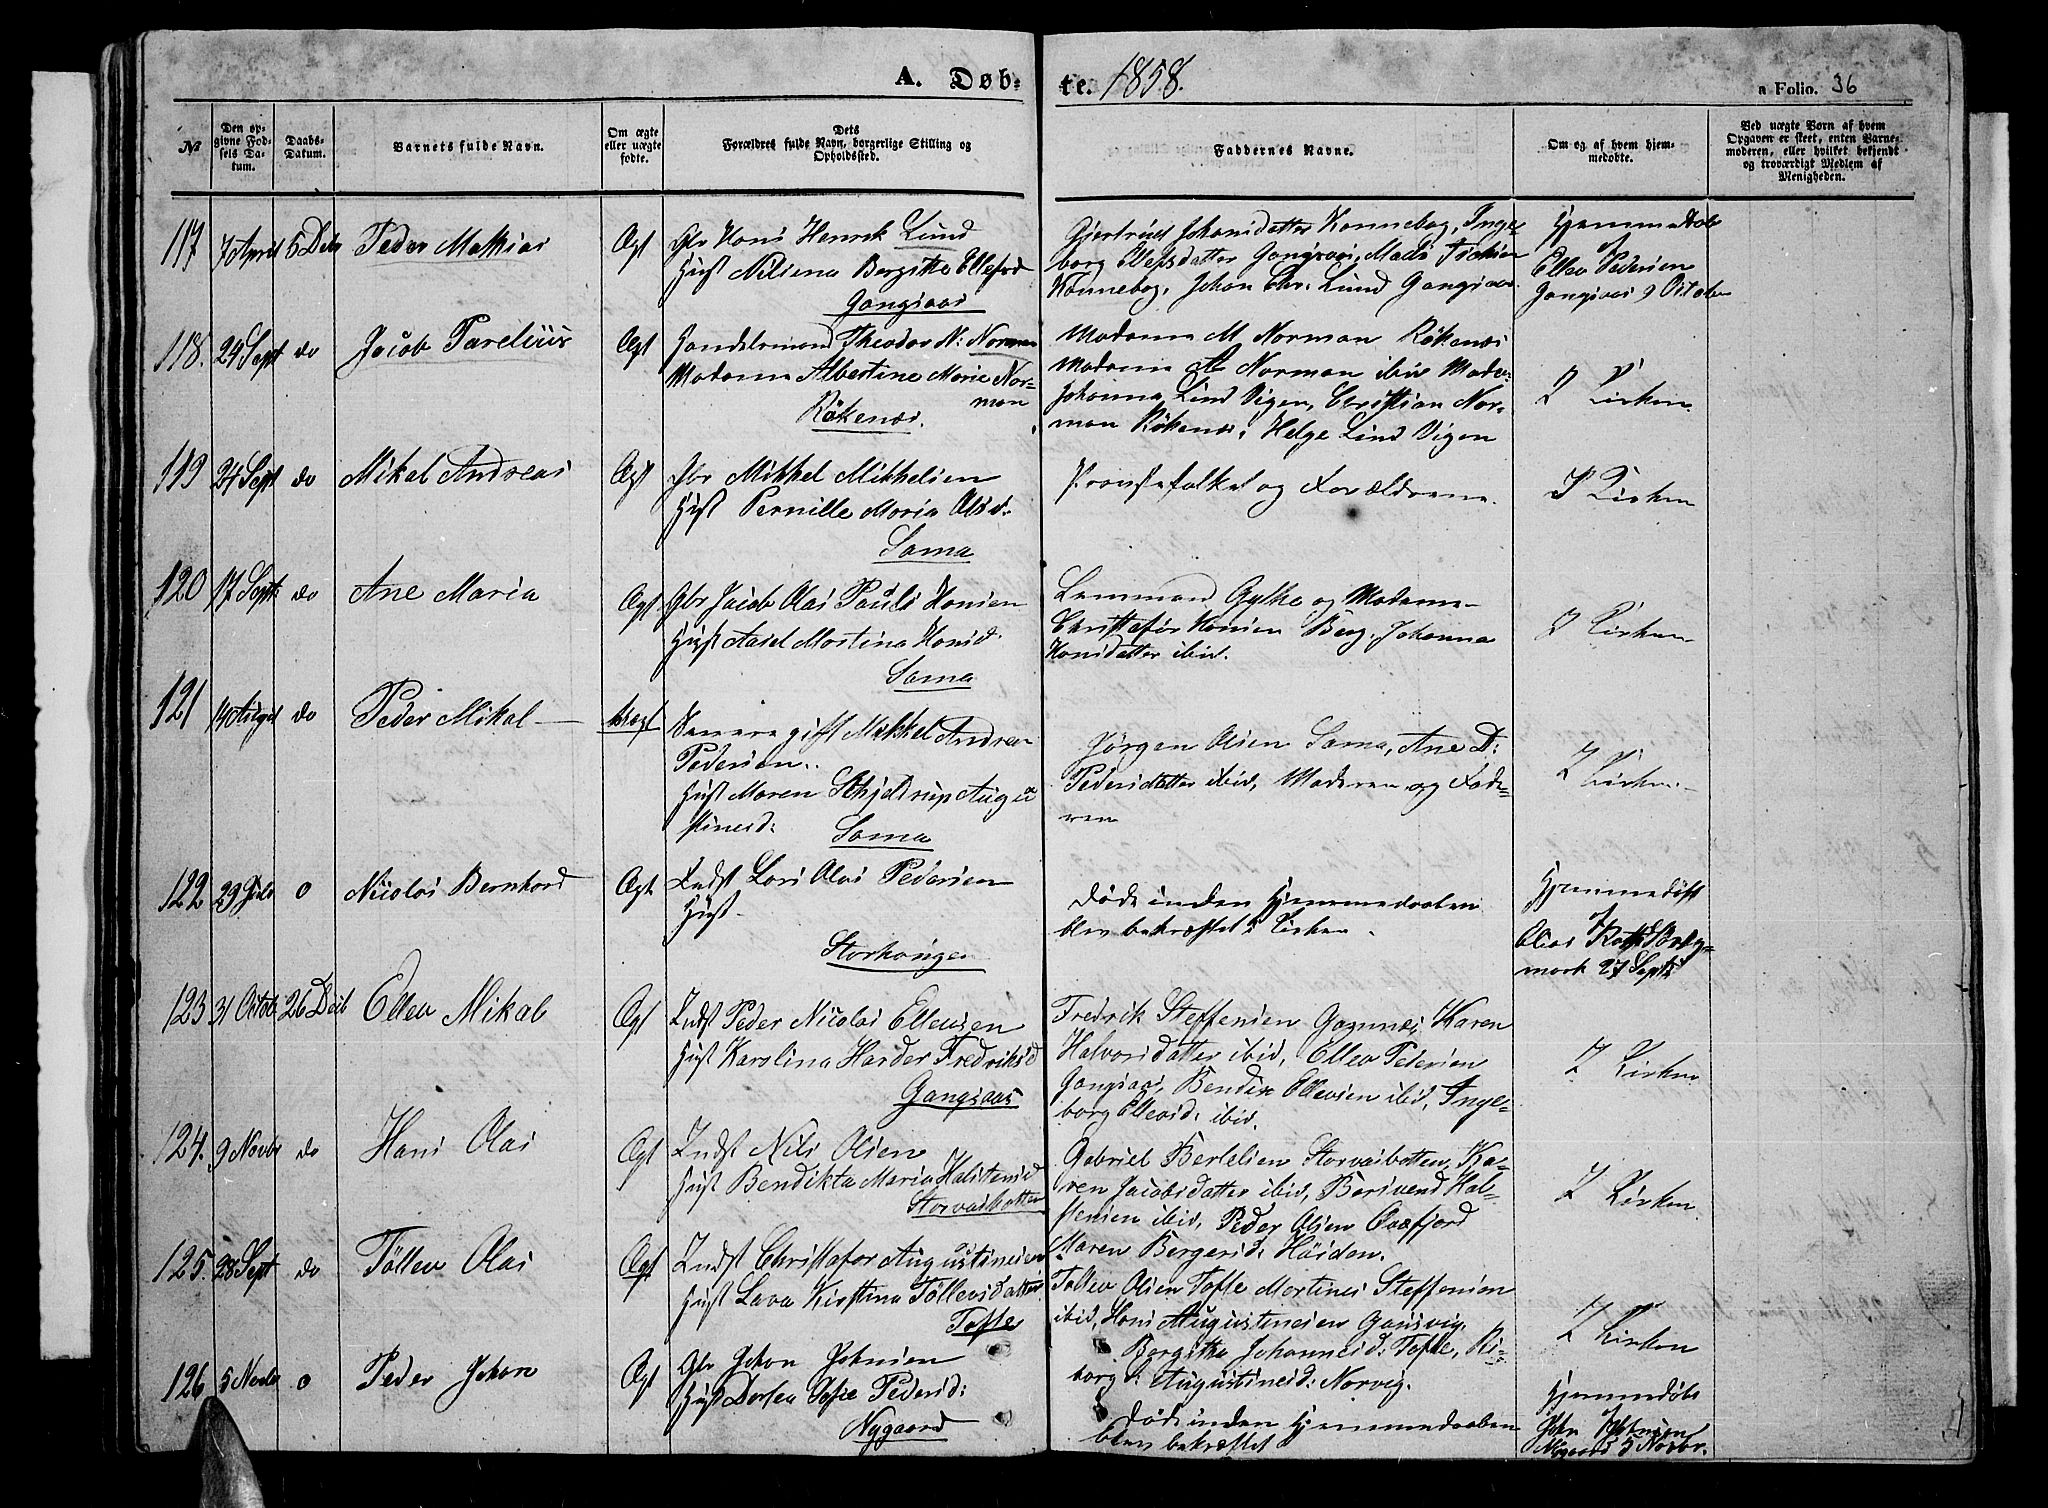 A. Døb-
te. 1858.
a Folio. 36
№
Den op-
givne Fød-
sels Da-
tum.
Daabs-
Datum.
Barnets fulde Navn.
Om ægte
eller uægte
fødte.
Dets
Forældres fulde Navn, borgerlige Stilling og
Opholdssted.
Faddernes Navne.
Om og af hvem hjem-
medøbte.
Ved uægte Børn af hvem
Opgaven er skeet, enten Barne-
moderen, eller hvilket bekjendt
og troværdigt Medlem af
Menigheden.
117 7 April 5 Debr Peder Mathias Ægt
Gbr Hans Henrik Lund
Hust Niliena Bergitte Ellefsd
Gangsaas
Gjertrud Johansdatter Konnebog, Inge
borg Elevsdatter Gangsaas, Mads
Konnebog, Johan Chr. Lund Gangsaas
Hjemmedøb
af
Ellev Pedersen
Gangsaas 9 October
118. 24 Sept do Jacob Parelius Ægt
Handelsmand Theodor N: Norman
Madame Albertine Marie Nor=
man
Rökenæs.
Madame M Norman Rökenæs
Madame A Norman ibid Mada:
Johanna Lind Vigen, Christian Nor-
man Rökenæs, Helge Lind Vigen
I Kirken.
119 24 Sept do Mikal Andreas Ægt
Gbr Mikkel Mikkelsen
Hust Pernille Maria Olsd.
Sama
Provstefolket og Forældrene.
I Kirken
120 17 Sept do Ane Maria Ægt
Gbr Jacob Olai Pauls Hansen
Hust Aasel Martina Hansd.
Sama
Lensmand Gylche og Madame
Christofor Hansen Berg, Johanna
Hansdatter ibid.
I Kirken
121 14 August do Peder Mikal Uægt
gift Mikkel Andrea
Pedersen..
Hust Maren Schjeldrup Augu
stinesd:
Sama
Jørgen Olsen Sama, Ane D:
Pedersdatter ibid, Moderen og Fade=
ren
I Kirken
122 29 o Nicolai Bernhard Ægt
Indst Lars Olai Pedersen
Hust
Storhaugen
Døde inden Hjemmedaaben
blev bekræftet i Kirken.
Hjemmedøbt
af
mark 27 Septb
123 31 Octob 26 Decb Ellev Mikal Ægt
Indst Peder Nicolai Ellevsen
Hust Karolina Harder Fredriksd
Gangsaas
Fredrik Steffensen Gausnæs, Karen
Halvorsdatter ibid, Ellev Pedersen
Gangsaas, Bendix Ellevsen ibid, Inge-
borg Ellevsd: ibid.
I Kirken
124. 9 Novbr do Hans Olai Ægt
Indst Nils Olsen
Hust Bendikta Maria Halstensd
Storvasbotten
Gabriel Bertelsen Storvasbotten, Ka-
ren Jacobsdatter ibid, Berivend Hal-
stensen ibid, Peder Olsen Qvæfjord
Maren Bergersd: Höiden.
I Kirken
125. 28 Sept do Töllev Olai Ægt
Indst Christofor Augustinesen
Hust Lava Kirstina Töllevsdatter
Tofte
Tollev Olsen Tofte Martines Steffensen
ibid, Hans Augustinesen Gausvig.
Bergitha Johannesd: Tofte, Ri-
borg Augustinesd: Norvig.
I Kirken
126 5 Novbr o Peder Johan Ægt
Gbr Johan Johnsen
Hust Dortea Sofie Pedersd:
Nygaard
Døde inden Hjemmedaaben
blev bekræftet
Hjemmedøbt
John Johnsen
Nygaard 5 Novbr.